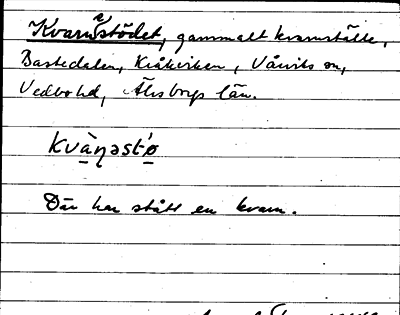 Kvarnstödet, gammalt kvarnställe,
Bastedalen, Kråkviken, Vårviks sn,
Vedbo hd, Älvsborgs län.
kvàŋəstǿ
Där har stått en kvarn.